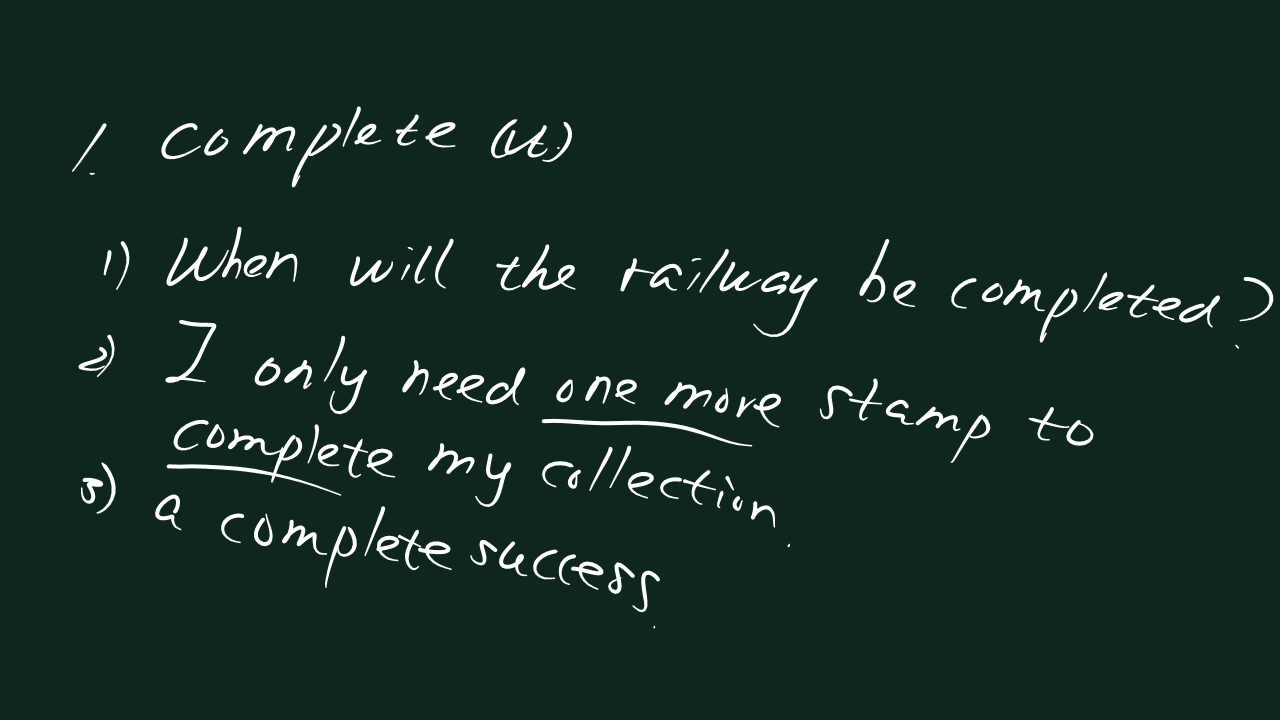 1. complete (vt.)
1) When will the railway be completed?
2) I only need one more stamp to
complete my collection.
3) a complete success.